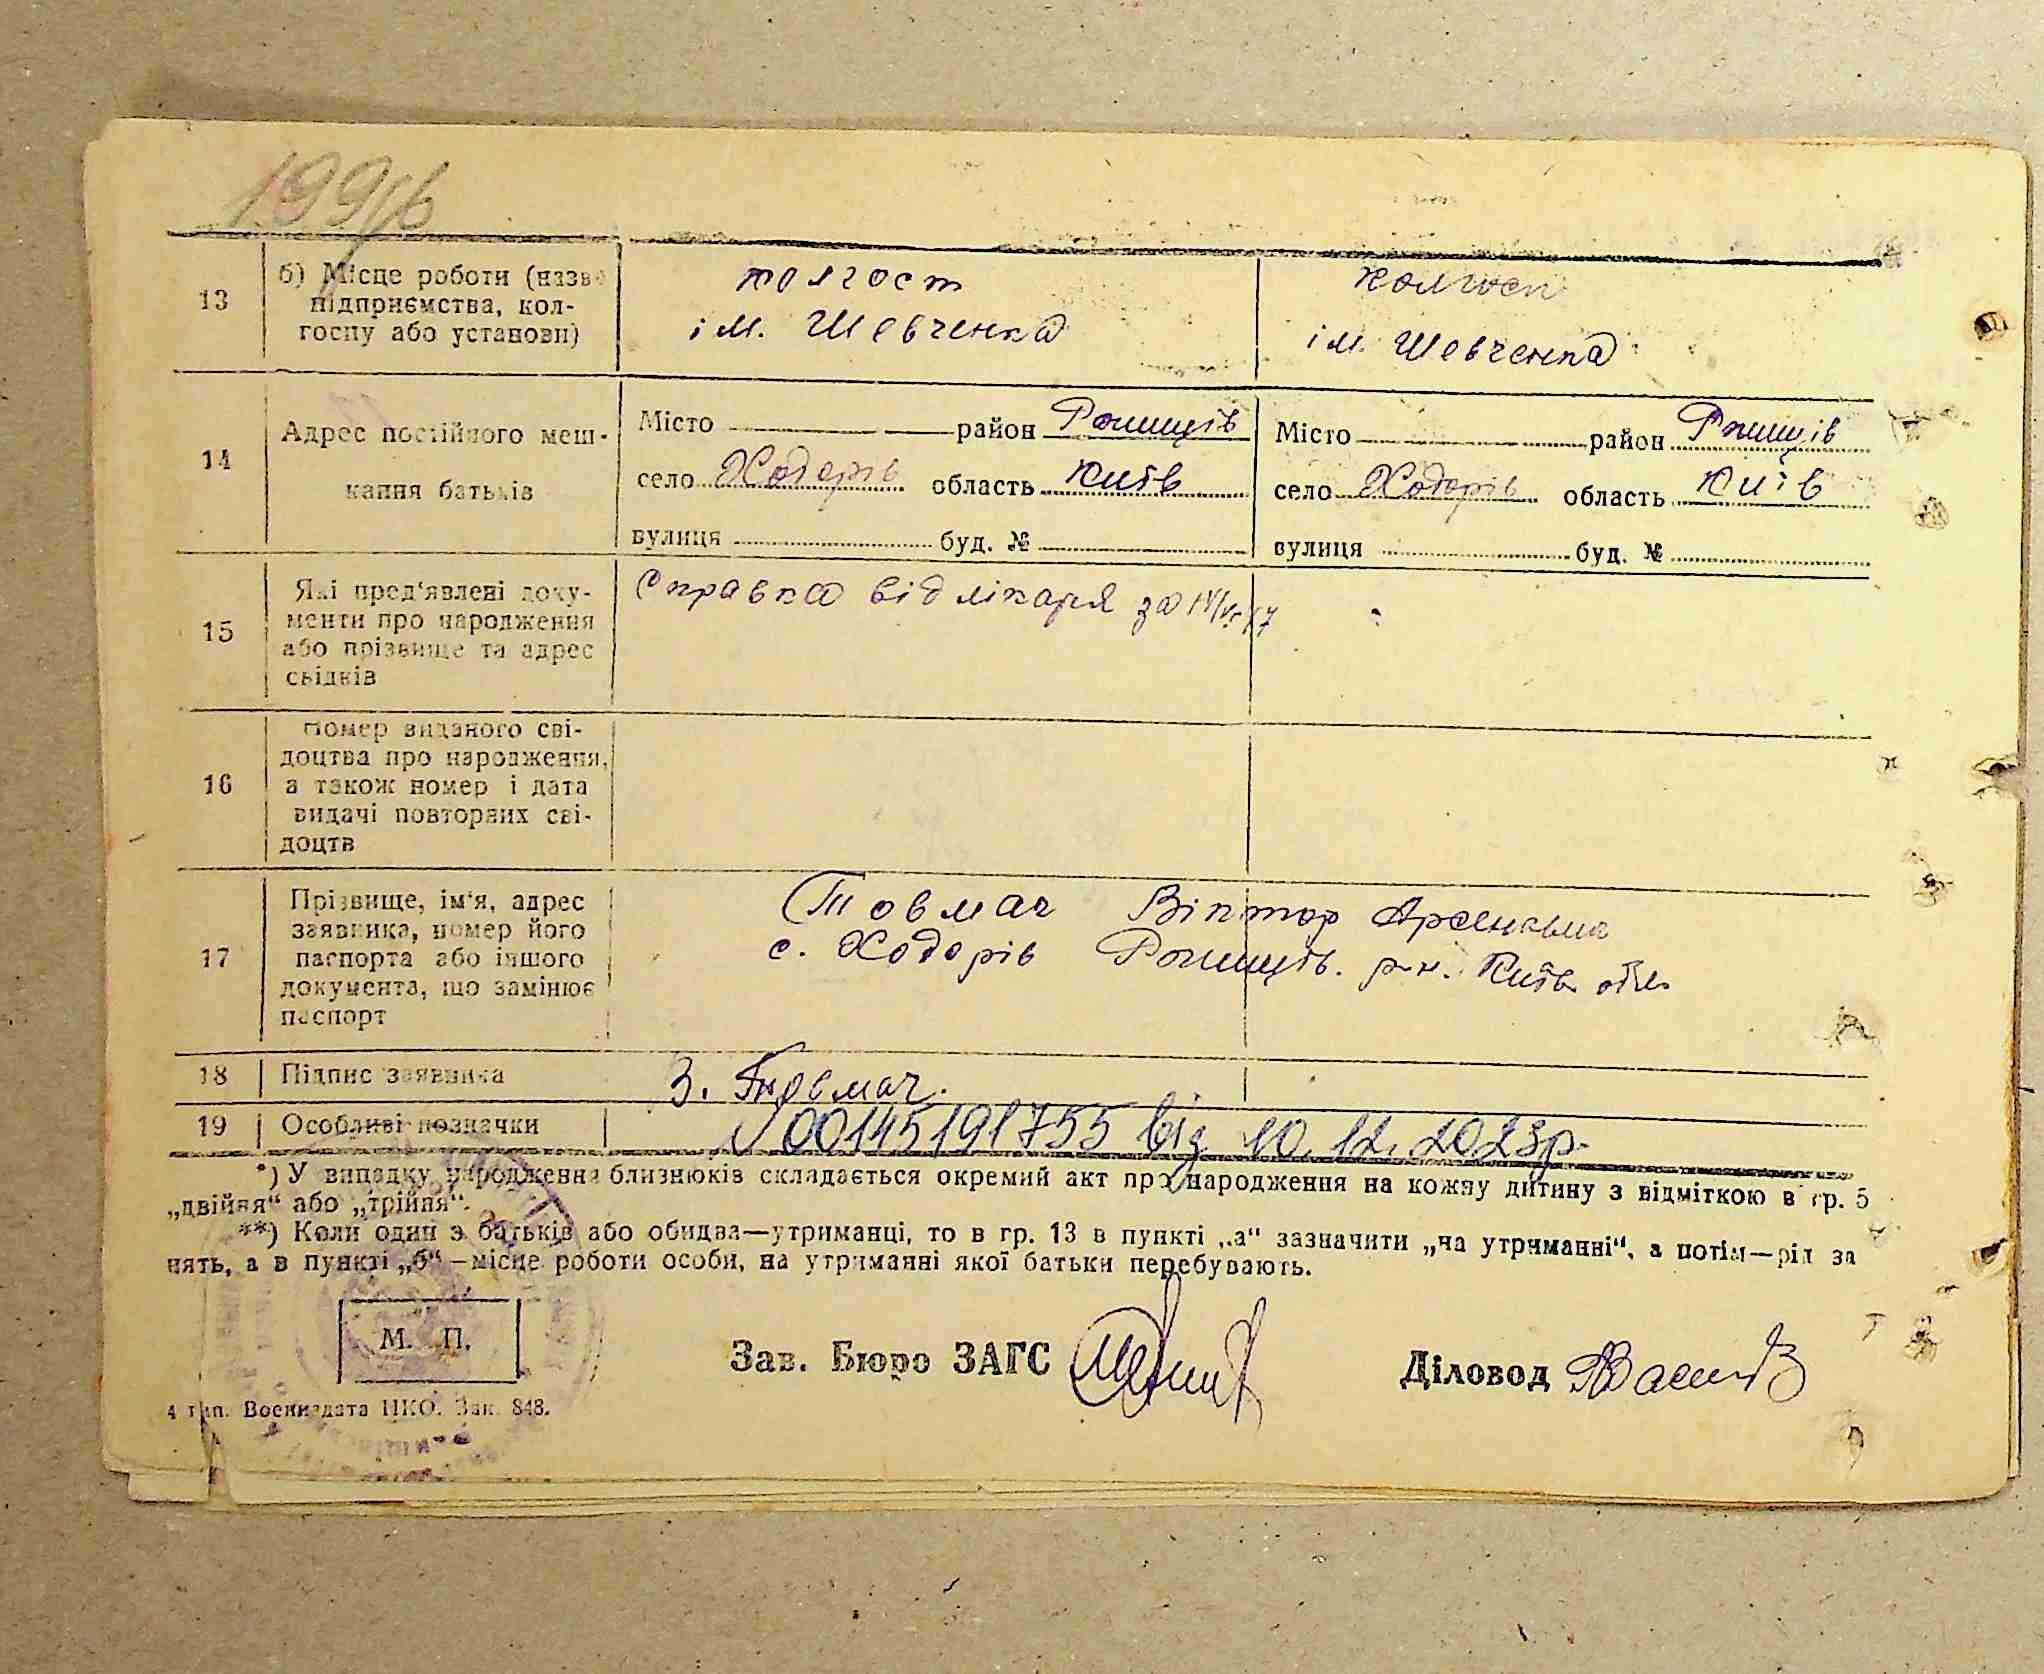 199зв
13
б) Місце роботи (назва
підприємства, кол-
госпу або установи)
колгосп
ім. Шевченка
колгосп
ім. Шевченка
14
Адрес постійного меш-
кання батьків
Місто район Ржищів
село Ходорів область Київ
вулиця буд. №
Місто район Ржищів
село Ходорів область Київ
вулиця буд. №
15
Які пред'явлені доку-
менти про народження
або прізвище та адрес
свідків
Справка від лікаря за
16
Номер виданого сві-
доцтва про народження,
а також номер і дата
видачі повторних сві-
доцтв
17
Прізвище, ім'я, адрес
заявника, номер його
паспорта або іншого
документа, що замінює
паспорт
Товмач Віктор
с. Ходорів Ржищів. р-н. Київ обл.
18 Підпис заявника
З. Товмач.
19 Особливі позначки
№ 00145191755 від 10.12.2023р.
*) У випадку народження близнюків складається окремий акт про народження на кожну дитину з відміткою в гр. 5
„двійня“ або „трійня“.
**) Коли один з батьків або обидва—утриманці, то в гр. 13 в пункті „а“ зазначити „на утриманні“, а потім—рід за
нять, а в пункті „б“—місце роботи особи, на утриманні якої батьки перебувають.
М. П.
Зав. Бюро ЗАГС
Діловод
4 тип. Воениздата НКО. Зак. 848.